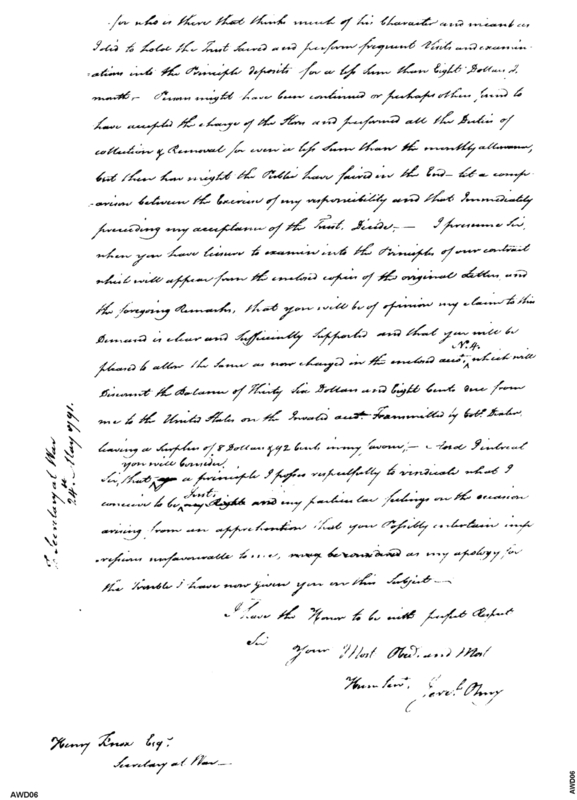 for who is there that think much of his Character and means as
I did to hold the Trust Sacred and perform frequent Visits and examin-
ations into the Principle deposits for a less sum than Eight Dollars P.
month - Persons might have been continued or perhaps others found to
have accepted the charge of the Stores and performed all the Duties of
collection & Removal for even a less sum than the monthly allowance,
but then how might the Public have faired in the End - let a comp-
arison between the Exercise of my responsibility and that Immediately
preceeding my acceptance of the Trust. Decide. - I presume Sir,
when you have liesure to examin into the Principles of our contract
which will appear from the enclosed copies of the original Letters, and
the foregoing Remarks, that you will be of opinion my claim to this
Demand is clear and Sufficiently Supported and that you will be
N. 4.
pleased to allow the same as now charged in the enclosed acct. which will
Discount the Balance of Thirty Six Dollars and Eight Cents due from
me to the United States on the Invalid acct. Transmitted by Coll.
leaving a Surplus of 8 Dollars & 92 Cents in my favour; - And I intreat
you will Consider
Sir, that a principle I possess respectfully to vindicate what I
Just
conceive to be my Rights and my particular feelings on the occasion
arising from an apprehention that you Possibly entertain imp
ressions unfavourable to me, may be considered as my apology for
the Trouble I have now given you on this Subject -
I have the Honor to be with perfect Respect
Sir
Your Most Obed. and Most
Hum. Servt.
To Secretary at War
24th May 1791.
Henry Knox Esqr.
Secretary at War -
AWD06
AWD06